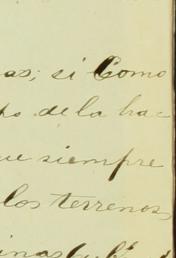 as; si Como
de la hac
ue siempre
los terrenos